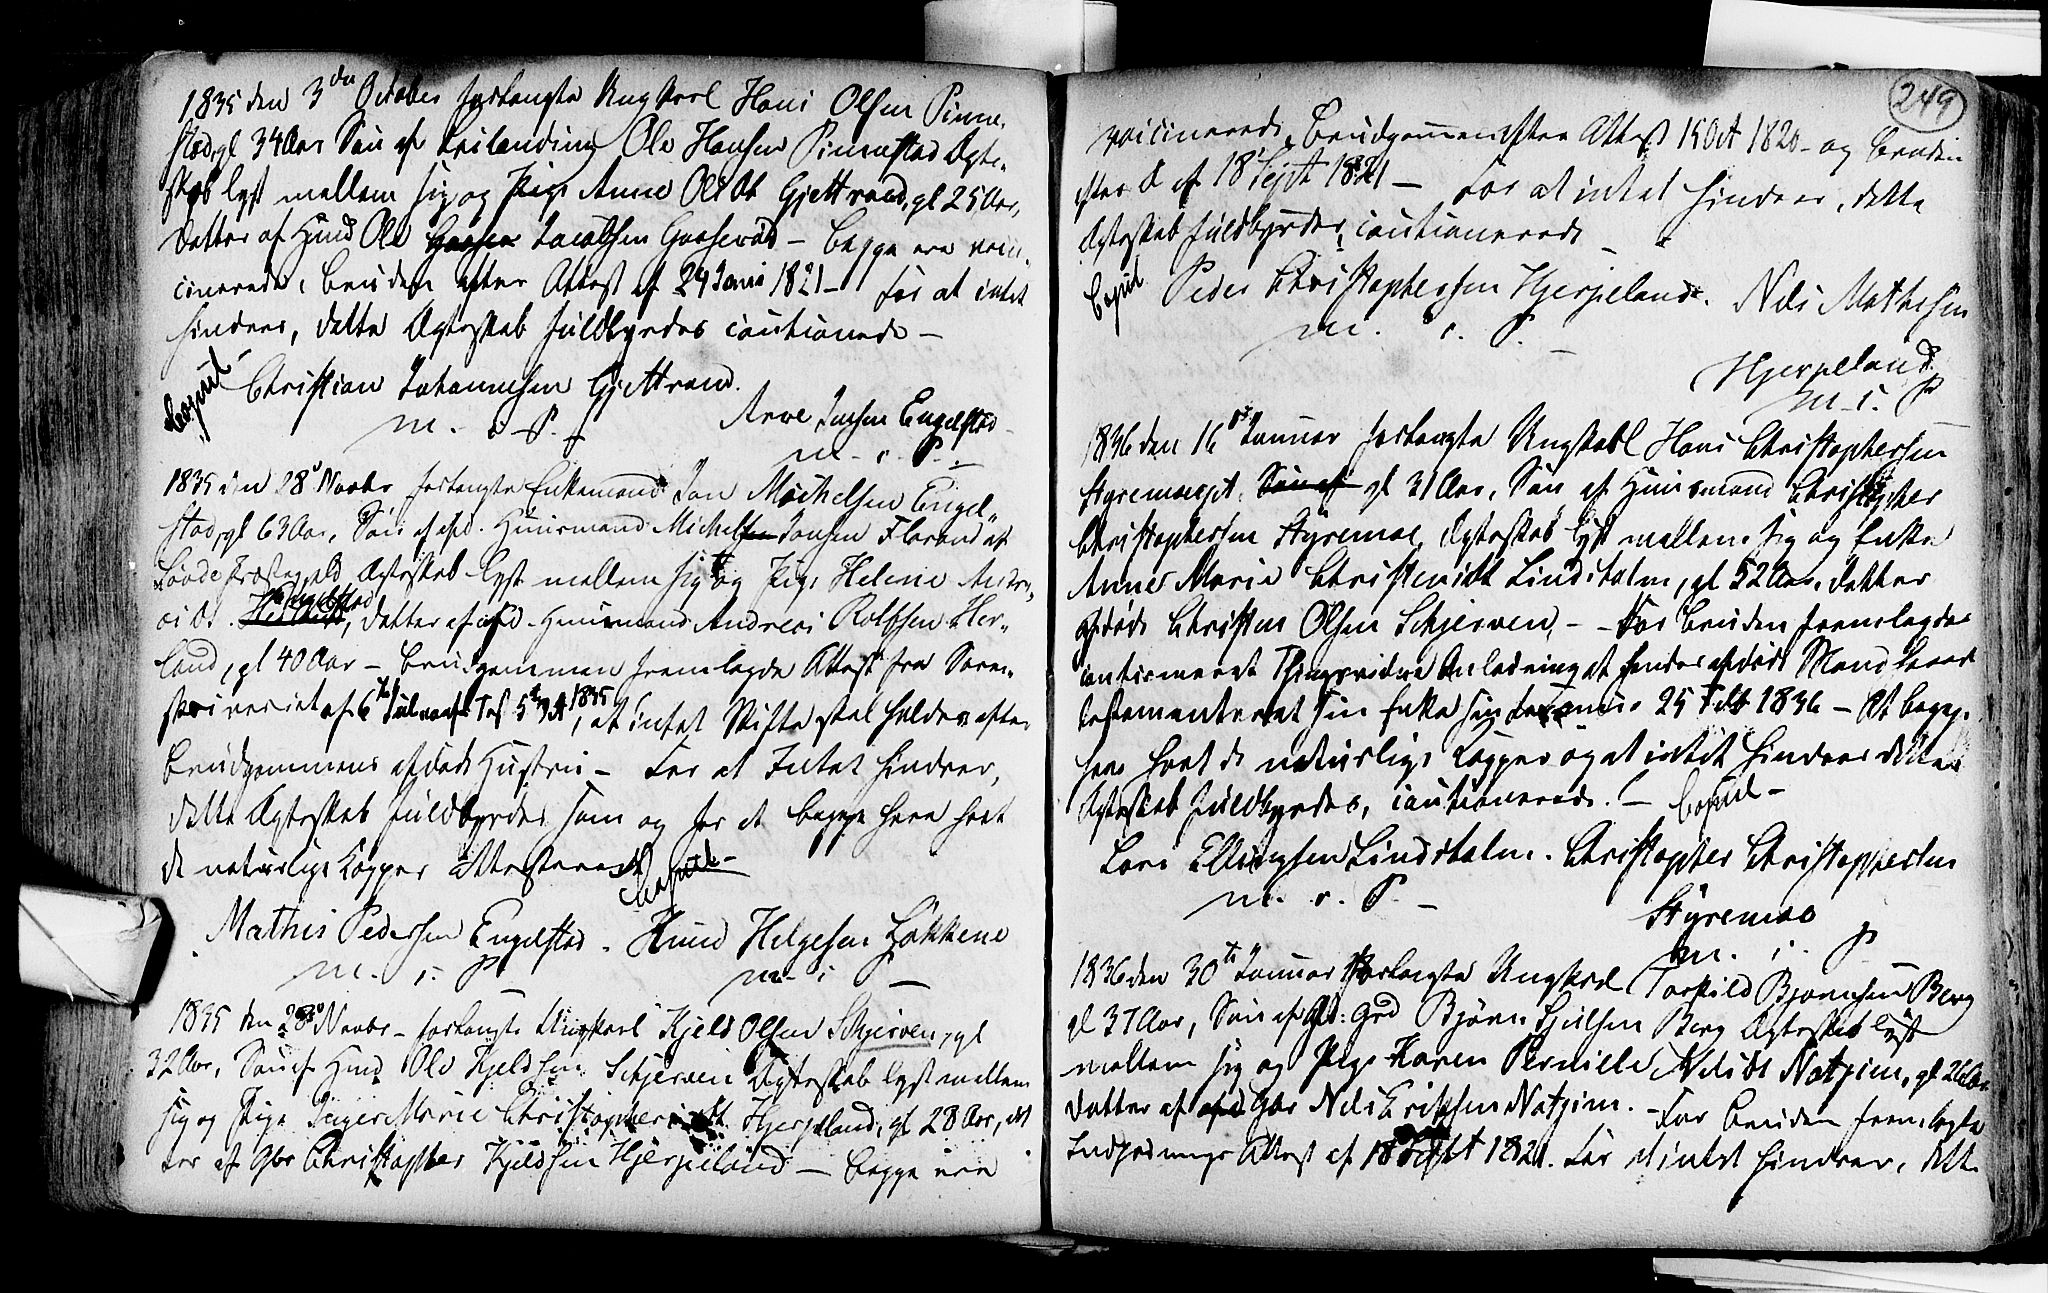 1835 den 3die October forlangte Ungkarl Hans Olsen Pinne-
stad, gl 34 Aar Søn af Ole Hansen Pinnestad Ægte-
skab lyst mellem sig og Pige Anne OlsDt Gjettrand, gl 25 Aar,
Datter af Ole Hansen Jacobsen Gaaserød – begge ere vacci-
cinerede, Bruden efter Attest af 24 Juni 1821 – For at intet
hindrer, dette Ægteskab fuldbyrdes cautionerede –
Copul.
Christian Johannesen Gjettrand.
m. i. P.
Arve Engelstad
m. i. P.
1835 den 28de Novbr forlangte Enkemand Jan Michelsen Engel-
stad, gl 63 Aar, Søn af afd. Huusmand Michel Jansen af
Præstegjeld Ægteskab lyst mellem sig og Pige Helene Andre-
æDt. Engelstad, Datter af afd. Huusmand Andreas Rolfsen Her-
land, gl 40 Aar – Brudgommen fremlagde Attest fra Soren-
skriveriet af 1835, at intet Skifte skal holdes efter
Brudgommens afdøde Hustru – For at Intet hindrer,
dette Ægteskab fuldbyrdes som og for at begge have havt
de naturlige Kopper attesterer
Copul. –
Mathis Pedersen Engelstad. Knud Helgesen Løkkene
m. i. P. m. i. P.
1835 den 28de Novbr – forlangte Ungkarl Kjeld Olsen Schjerven, gl
32 Aar, Søn af Ole Kjeldsen Schjerven Ægteskab lyst mellem
sig og Pige Inger Marie ChristophersDt. Hjerpeland, gl 28 Aar, Dat
ter af Gbr Christopher Kjeldsen Hjerpeland – begge ere
249
vaccinerede, Brudgommen efter Attest 15 Oct 1820 – og Bruden
efter d af 18 Sept 1821 – For at intet hindrer, dette
Ægteskab fuldbyrdes, cautionerede –
Copul
Peder Christophersen Hjerpeland. Nils Mathesen
m. i. P. –
Hjerpeland
m. i. P
1836 den 16de Januar forlangte Ungkarl Hans Christophersen
Styremoe, Søn af gl 31 Aar, Søn af Huusmand Christopher
Christophersen Styremoe, Ægteskab lyst mellem sig og Enke
Anne Marie ChristensDt Lindsholm, gl 52 Aar, Datter
af Christen Olsen Schjerven, – For Bruden fremlagdes
Thingsvidne at hendes afdøde Mand havde
testamenteret sin Enke 25 1836 – At begge
have havt de naturlige Kopper og at intet hindrer dette
Ægteskab fuldbyrdes, cautionerede. – Copul –
Lars Ellingsen Lindsholm. Christopher Christophersen
m. i. P. –
Styremoe
m. i. P
1836 den 30te Januar forlangte Ungkarl Torkild Bjørnsen Berg
gl 37 Aar, Søn af Bjørn Berg Ægteskab lyst
mellem sig og Pige Karen Pernille NilsDt Natvim, gl 26 Aar
Datter af afd Gbr Nils Eriksen Natvim. – For Bruden fremlagte
Attest af 18 Sept 1821. For at intet hindrer, dette